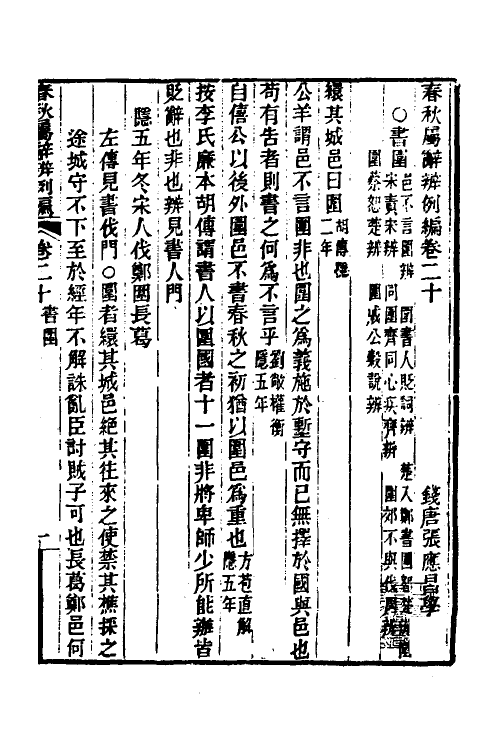 春秋屬辭辨例編卷二十
錢唐張應昌學
○書圍
邑不言圍辨 圍書人貶詞辨 楚人鄭書圍
宋責宋辨 同圍齊同心疾齊辨 圍郊不與伐
圍蔡恕楚辨 圍成公穀說辨
繯其城邑曰圍胡傳隱二年
公羊謂邑不言圍非也圍之爲義施於塹守而已無擇於國與邑也
苟有告者則書之何爲不言乎劉敞權衡隱五年
自僖公以後外圍邑不書春秋之初猶以圍邑爲重也方苞直解隱五年
按李氏廉本胡傳謂書人以圍國者十一圍非將卑師少所能辦皆
貶辭也非也辨見書人門
隱五年冬宋人伐鄭圍長葛
左傳見書伐門○圍者繯其城邑絕其往來之使禁其樵採之
途城守不下至於經年不解誅亂臣討賊子可也長葛鄭邑何
春秋屬辭辨例編 卷二十 書圍 一